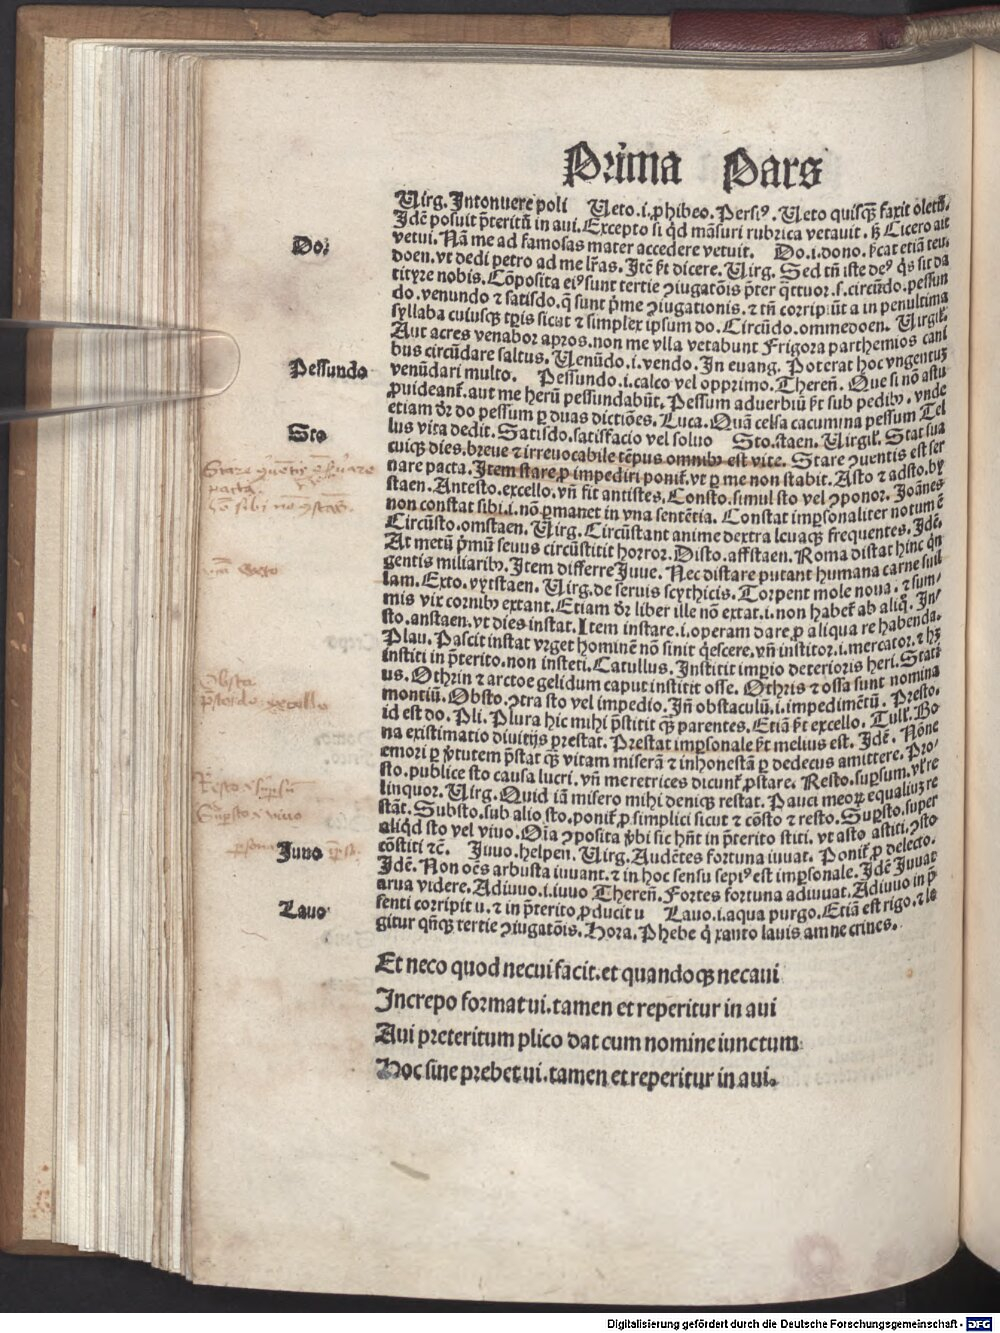 Prima Pars
Virg. Intonuere poli Veto.i.ꝓhibeo. Persiꝰ. Veto quisqꝫ faxit oletū.
Idē posuit p̄teritū in aui. Excepto si qd māsuri rubrica vetauit. sꝫ Cicero ait
Do.
vetui. Nā me ad famosas mater accedere vetuit. Do.i.dono. fcat etiā teu.
doen. vt dedi petro ad me lr̄as. Itē fit dicere. Virg. Sed tn̄ iste deꝰ qs sit da
tityre nobis. Cōposita eiꝰ sunt tertie ↄiugatōis p̄ter q̄ttuor.s.circūdo.pessun
do.venundo ⁊ satisdo.q̄ sunt p̄me ↄiugationis.⁊ tn̄ corripiūt a in penultima
syllaba cuiusqꝫ tp̄is sicut ⁊ simplex ipsum do. Circūdo.ommedoen. Virgil.
Aut acres venabor apros.non me vlla vetabunt Frigora parthemios cani
bus circūdare saltus. Venūdo.i.vendo. In euang. Poterat hoc vngentuꝫ
Pessundo
venūdari multo. Pessundo.i.calco vel opprimo. Thereñ. Que si nō astu
ꝓuideant̄.aut me herū pessundabūt. Pessum aduerbiū fit sub pedibꝰ. vnde
etiam dr̄ do pessum ꝑ duas dictiōes. Luca. Quā celsa cacumina pessum Tel
Sto
lus vita dedit. Satisdo.satisfacio vel soluo Sto.staen. Virgil. Stat sua
cuiqꝫ dies.breue ⁊ irreuocabile tēpus omnibꝰ est vite. Stare ↄuentis est ser
Stare ↄuētis ē ẜuare
pacta
uare pacta. Item stare ꝓ impediri ponit̄.vt ꝑ me non stabit. Asto ⁊ adsto.by
staen. Antesto.excello.vn̄ fit antistes. Consto.simul sto vel ↄponor. Joānes
non constat sibi.i.nō ꝑmanet in vna sentētia. Constat imꝑsonaliter notum ē
Circūsto.omstaen. Virg. Circūstant anime dextra leuaqꝫ frequentes. Idē.
At metū p̄mū seuus circūstitit horror. Disto.affstaen. Roma distat hinc qn̄
gentis miliaribꝰ. Item differre Juue. Nec distare putant humana carne suil
Exto
lam. Exto.vytstaen. Virg.de seruis scythicis. Torpent mole noua.⁊ sum/
mis vix cornibꝰ extant. Etiam dr̄ liber ille nō extat.i.non habet̄ ab aliq̄. In/
sto.anstaen.vt dies instat. Item instare.i.operam dare ꝓ aliqua re habenda.
Plau. Pascit instat vrget hominē nō sinit q̄escere.vn̄ institor.i.mercator.⁊ hꝫ
institi in p̄terito.non insteti. Catullus. Institit imꝑio deterioris heri. Stati
us. Othrin ⁊ arctoe gelidum caput institit osse. Othris ⁊ ossa sunt nomina
Obsto
montiū. Obsto.ↄtra sto vel impedio. Jn̄ obstaculū.i.impedimētū. Presto.
id est do. Pli. Plura hic mihi p̄stitit qꝫ parentes. Etiā fit excello. Tull. Bo
na existimatio diuitijs prestat. Prestat imꝑsonale fit melius est. Idē. Nōne
emori ꝑ v̄tutem p̄stat qꝫ vitam miserā ⁊ inhonestā ꝑ dedecus amittere. Pro/
sto.publice sto causa lucri.vn̄ meretrices dicunt̄ ꝓstare. Resto.suꝑsum.vl̄ re
linquor. Virg. Quid iā misero mihi deniqꝫ restat. Pauci meoꝝ equaliuꝫ re
stāt. Substo.sub alio sto.ponit̄ ꝓ simplici sicut ⁊ cōsto ⁊ resto. Suꝑsto.super
aliqd sto vel viuo. Oīa ↄposita v̄bi sic hn̄t in p̄terito stiti. vt asto astiti.ↄsto
Juuo
cōstiti ⁊c̄. Juuo.helpen. Virg. Audētes fortuna iuuat. Ponit̄ ꝓ delecto.
Idē. Non oēs arbusta iuuant.⁊ in hoc sensu sepiꝰ est imꝑsonale. Idē Juuat
arua videre. Adiuuo.i.iuuo Thereñ. Fortes fortuna adiuuat. Adiuuo in p̄
Lauo
senti corripit u.⁊ in p̄terito ꝓducit u Lauo.i.aqua purgo. Etiā est rigo.⁊ le
gitur qn̄qꝫ tertie ↄiugatōis. Hora. Phebe q̇ xanto lauis amne crines.
Et neco quod necui facit.et quandoqꝫ necaui
Increpo format ui.tamen et reperitur in aui
Aui preteritum plico dat cum nomine iunctum
Hoc sine prebet ui.tamen et reperitur in aui.
Digitalisierung gefördert durch die Deutsche Forschungsgemeinschaft - DFG